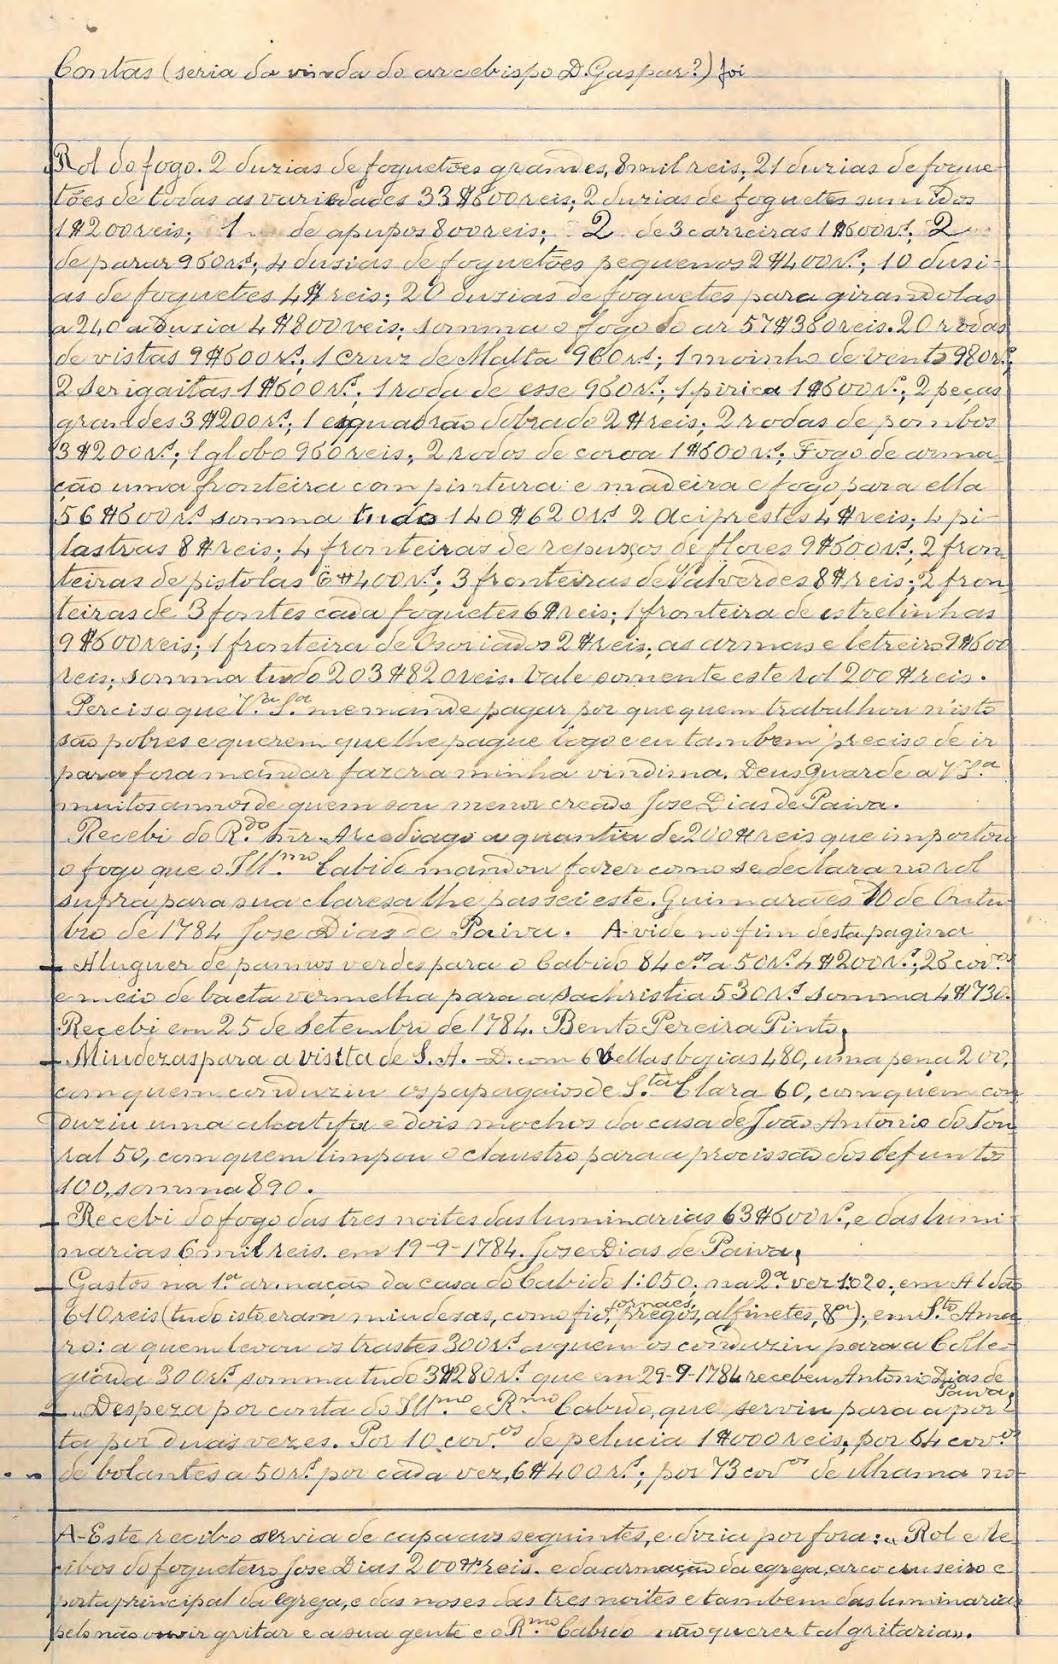 Contas (seria da vinda do arcebispo D. Gaspar?) foi
Rol do fogo. 2 duzias de foguetões grandes, 8 mil reis; 21 duzias de fogue-
tões de todas as variedades 33$600 reis; 2 duzias de foguetes sumidos
1$200 reis; 1 " de apupos 800 reis; 2 de 3 carreiras 1$600 rs.; 2 "
de parar 960 rs.; 4 dusias de foguetões pequenos 2$400 rs.; 10 dusi-
as de foguetes 4$ reis; 20 dusias de foguetes para girandolas
a 240 a dusia 4$800 reis; somma o fogo do ar 57$380 reis. 20 rodas
de vistas 9$600 rs.; 1 cruz de Malta 960 rs.; 1 moinho de vento 980 rs.;
2 serigaitas 1$600 rs.; 1 roda de esse 960 rs.; 1 pirica 1$600 rs.; 2 peças
grandes 3$200 rs.; 1 esquadrão dobrado 2$ reis; 2 rodas de pombos
3$200 rs.; 1 globo 960 reis; 2 rodos de coroa 1$600 rs.; Fogo de arma-
ção uma fronteira com pintura e madeira e fogo para ella
56$600 rs. somma tudo 140$620 rs. 2 Aciprestes 4$ reis; 4 pi-
lastras 8$ reis; 4 fronteiras de repuxos de flores 9$600 rs.; 2 fron-
teiras de pistolas 6$400 rs.; 3 fronteiras de Valverdes 8$ reis; 2 fron-
teiras de 3 fontes cada foguetes 6$ reis; 1 fronteira de estrelinhas
9$600 reis; 1 fronteira de 2$ reis; as armas e letreiro 9$600
reis; somma tudo 203$820 reis. Vale somente este rol 200$ reis.
Perciso que V.ª S.ª me mande pagar por que quem trabalhou nisto
são pobres e querem que lhe pague logo e eu tambem preciso de ir
para fora mandar fazer a minha vindima. Deus Guarde a V S.ª
muitos annos de quem sou menor creado Jose Dias de Paiva.
Recebi do R.do snr. Arcediago a quantia de 200$ reis que importou
o fogo que o Ill.mo Cabido mandou fazer como se declara no rol
supra para sua claresa lhe passei este. Guimarães 10 de Outu-
bro de 1784 Jose Dias de Paiva. A-vide no fim desta pagina
- Aluguer de pannos verdes para o Cabido 84 c.os a 50 rs. 4$200 rs.; 26 cov.os
e meio de baeta vermelha para a sachristia 530 rs. somma 4$730.
Recebi em 25 de Setembro de 1784. Bento Pereira Pinto.
- Miudezas para a visita de S. A. - D. com 6 vellas bogias 480, uma pena 200,
com quem conduziu os papagaios de S.ta Clara 60, com quem con-
duziu uma alcatifa e dois mochos da casa de João Antonio do Tou-
ral 50, com quem limpou o claustro para a procissão dos defuntos
100, somma 890.
- Recebi do fogo das tres noites das luminarias 63$600 rs., e das lumi-
narias 6 mil reis. em 19-9-1784. Jose Dias de Paiva;
- Gastos na 1.ª armação da casa do Cabido 1:050; na 2.ª vez 1:020; em Aldão
610 reis (tudo isto eram miudesas, como fio, fornaes, pregos, alfinetes, &ª); em S.to Ama-
ro: a quem levou os trastes 300 rs. a quem os conduziu para a Colle-
giada 300 rs. somma tudo 3$280 rs. que em 29-9-1784 recebeu Antonio Dias de
Paiva;
- Despeza por conta do Ill.mo e R.mo Cabido, que serviu para a por-
ta por duas vezes. Por 10 cov.os de pelucia 1$000 reis, por 64 cov.os
de bolantes a 50 rs. por cada vez, 6$400 rs.; por 73 cov.os de ilhama no-
A-Este recibo servia de capa aos seguintes, e dizia por fora: "Rol e re-
cibos do fogueteiro Jose Dias 200$ reis. e da armação da egreja, arco cruseiro e
porta principal da egreja, e das noses das tres noites e tambem das luminarias
pelo não ouvir gritar e a sua gente e o R.mo Cabido não querer tal gritaria".